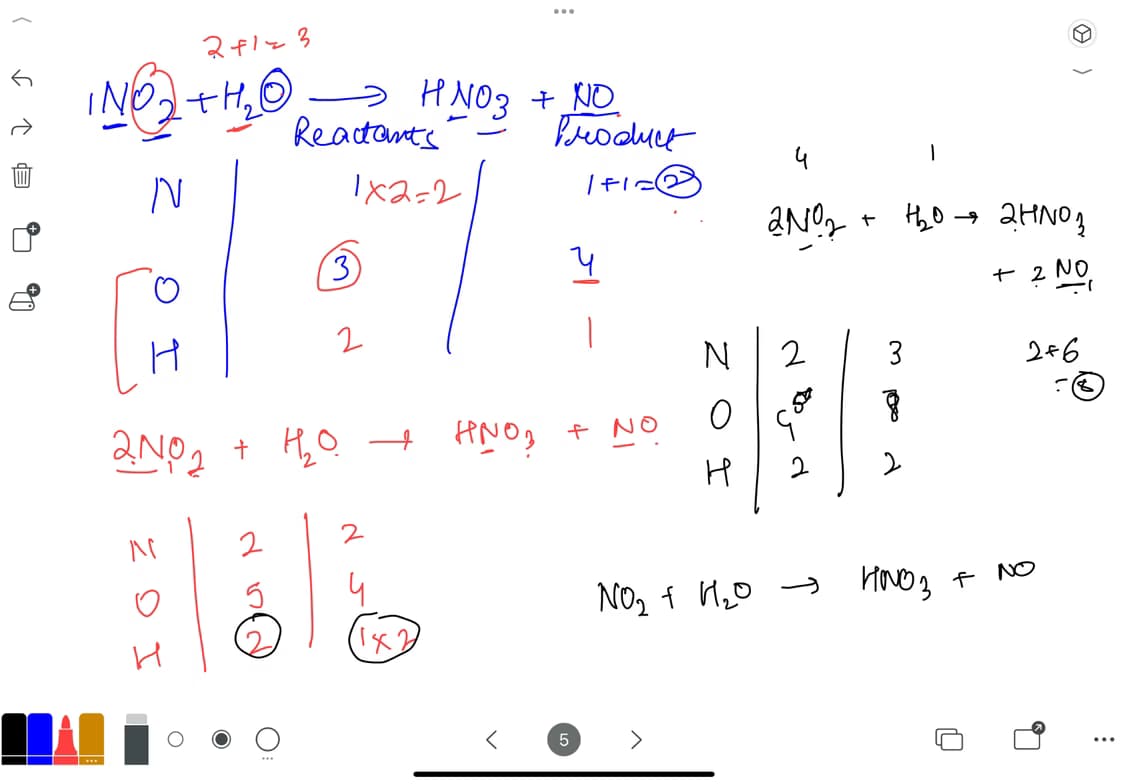 2+1=3
1NO2 + H2O → HNO3 + NO
Reactants Product
N 1×2=2 1+1=2
O 3 4
H 2 1
2NO2 + H2O → HNO3 + NO
N 2 2
O 5 4
H 2 1×2
4 1
2NO2 + H2O → 2HNO3
+ 2NO
N 2 3
2+6
=8
O 5 8
H 2 2
NO2 + H2O → HNO3 + NO
5